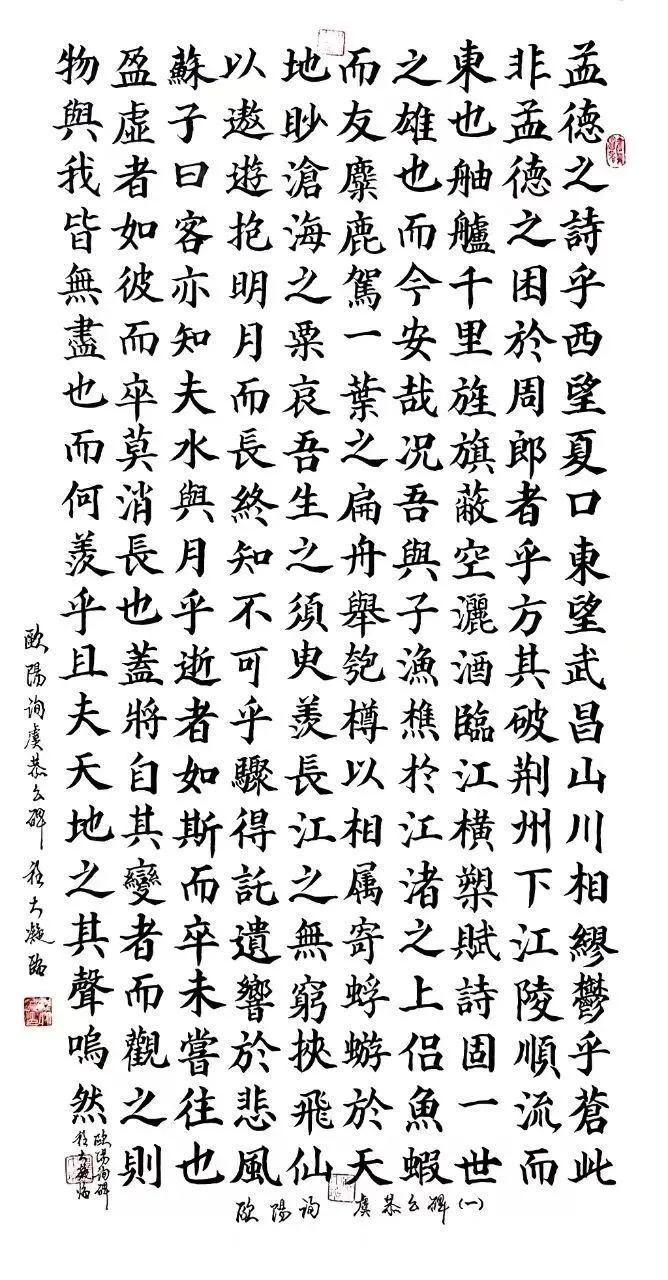 孟德之詩乎西望夏口東望武昌山川相繆鬱乎蒼此
非孟德之困於周郎者乎方其破荆州下江陵順流而
東也舳艫千里旌旗蔽空灑酒臨江橫槊賦詩固一世
之雄也而今安哉况吾與子漁樵於江渚之上侣魚蝦
而友麋鹿駕一葉之扁舟舉匏樽以相属寄蜉蝣於天
地眇滄海之粟哀吾生之須臾羨長江之無窮挾飛仙
以遨遊抱明月而長終知不可乎驟得託遺響於悲風
蘇子曰客亦知夫水與月乎逝者如斯而卒未嘗往也
盈虛者如彼而卒莫消長也蓋將自其變者而觀之則
物與我皆無盡也而何羨乎且夫天地之其聲嗚然
歐陽詢碑
歐陽詢虞恭公碑
歐陽詢 虞恭公碑(一)